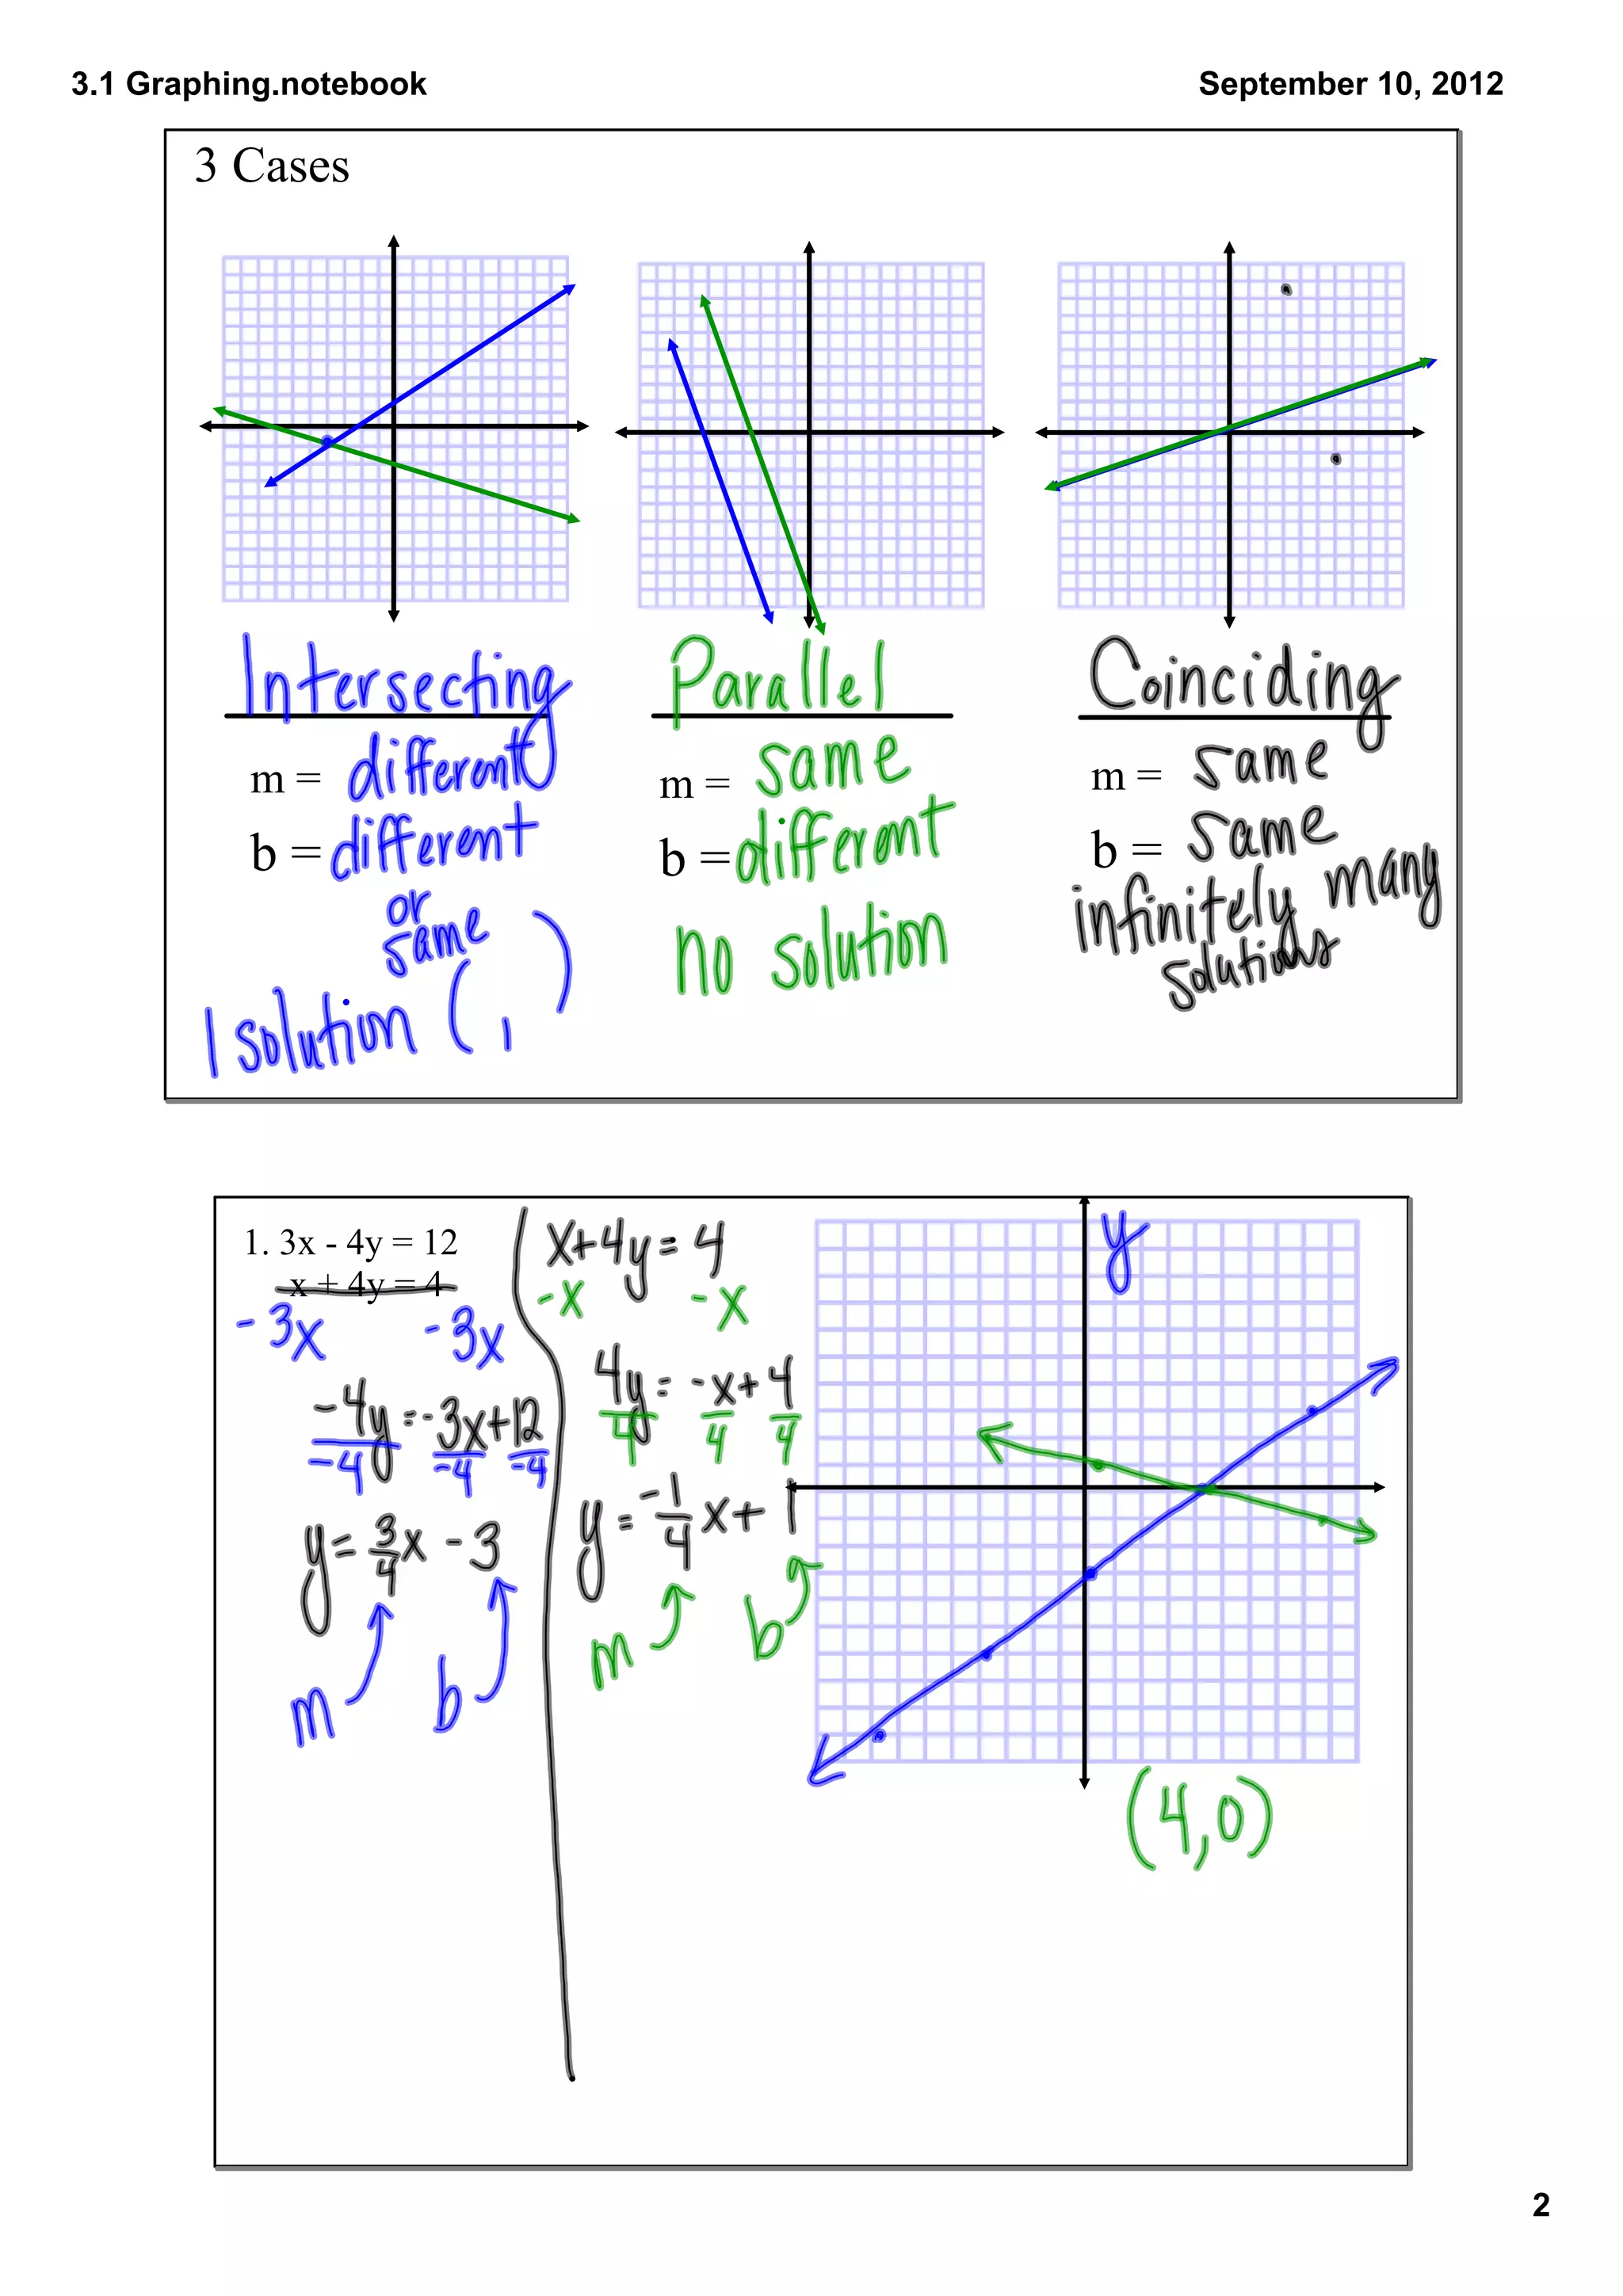 3.1 Graphing.notebook
September 10, 2012
3 Cases
Intersecting
m = different
b = different
or
same
1 solution ( , )
Parallel
m = same
b = different
no solution
Coinciding
m = same
b = same
infinitely many
solutions
1. 3x - 4y = 12
x + 4y = 4
-3x -3x
-4y = -3x + 12
-4 -4 -4
y = 3/4 x - 3
m b
x + 4y = 4
-x -x
4y = -x + 4
4 4 4
y = -1/4 x + 1
m b
y
(4,0)
2